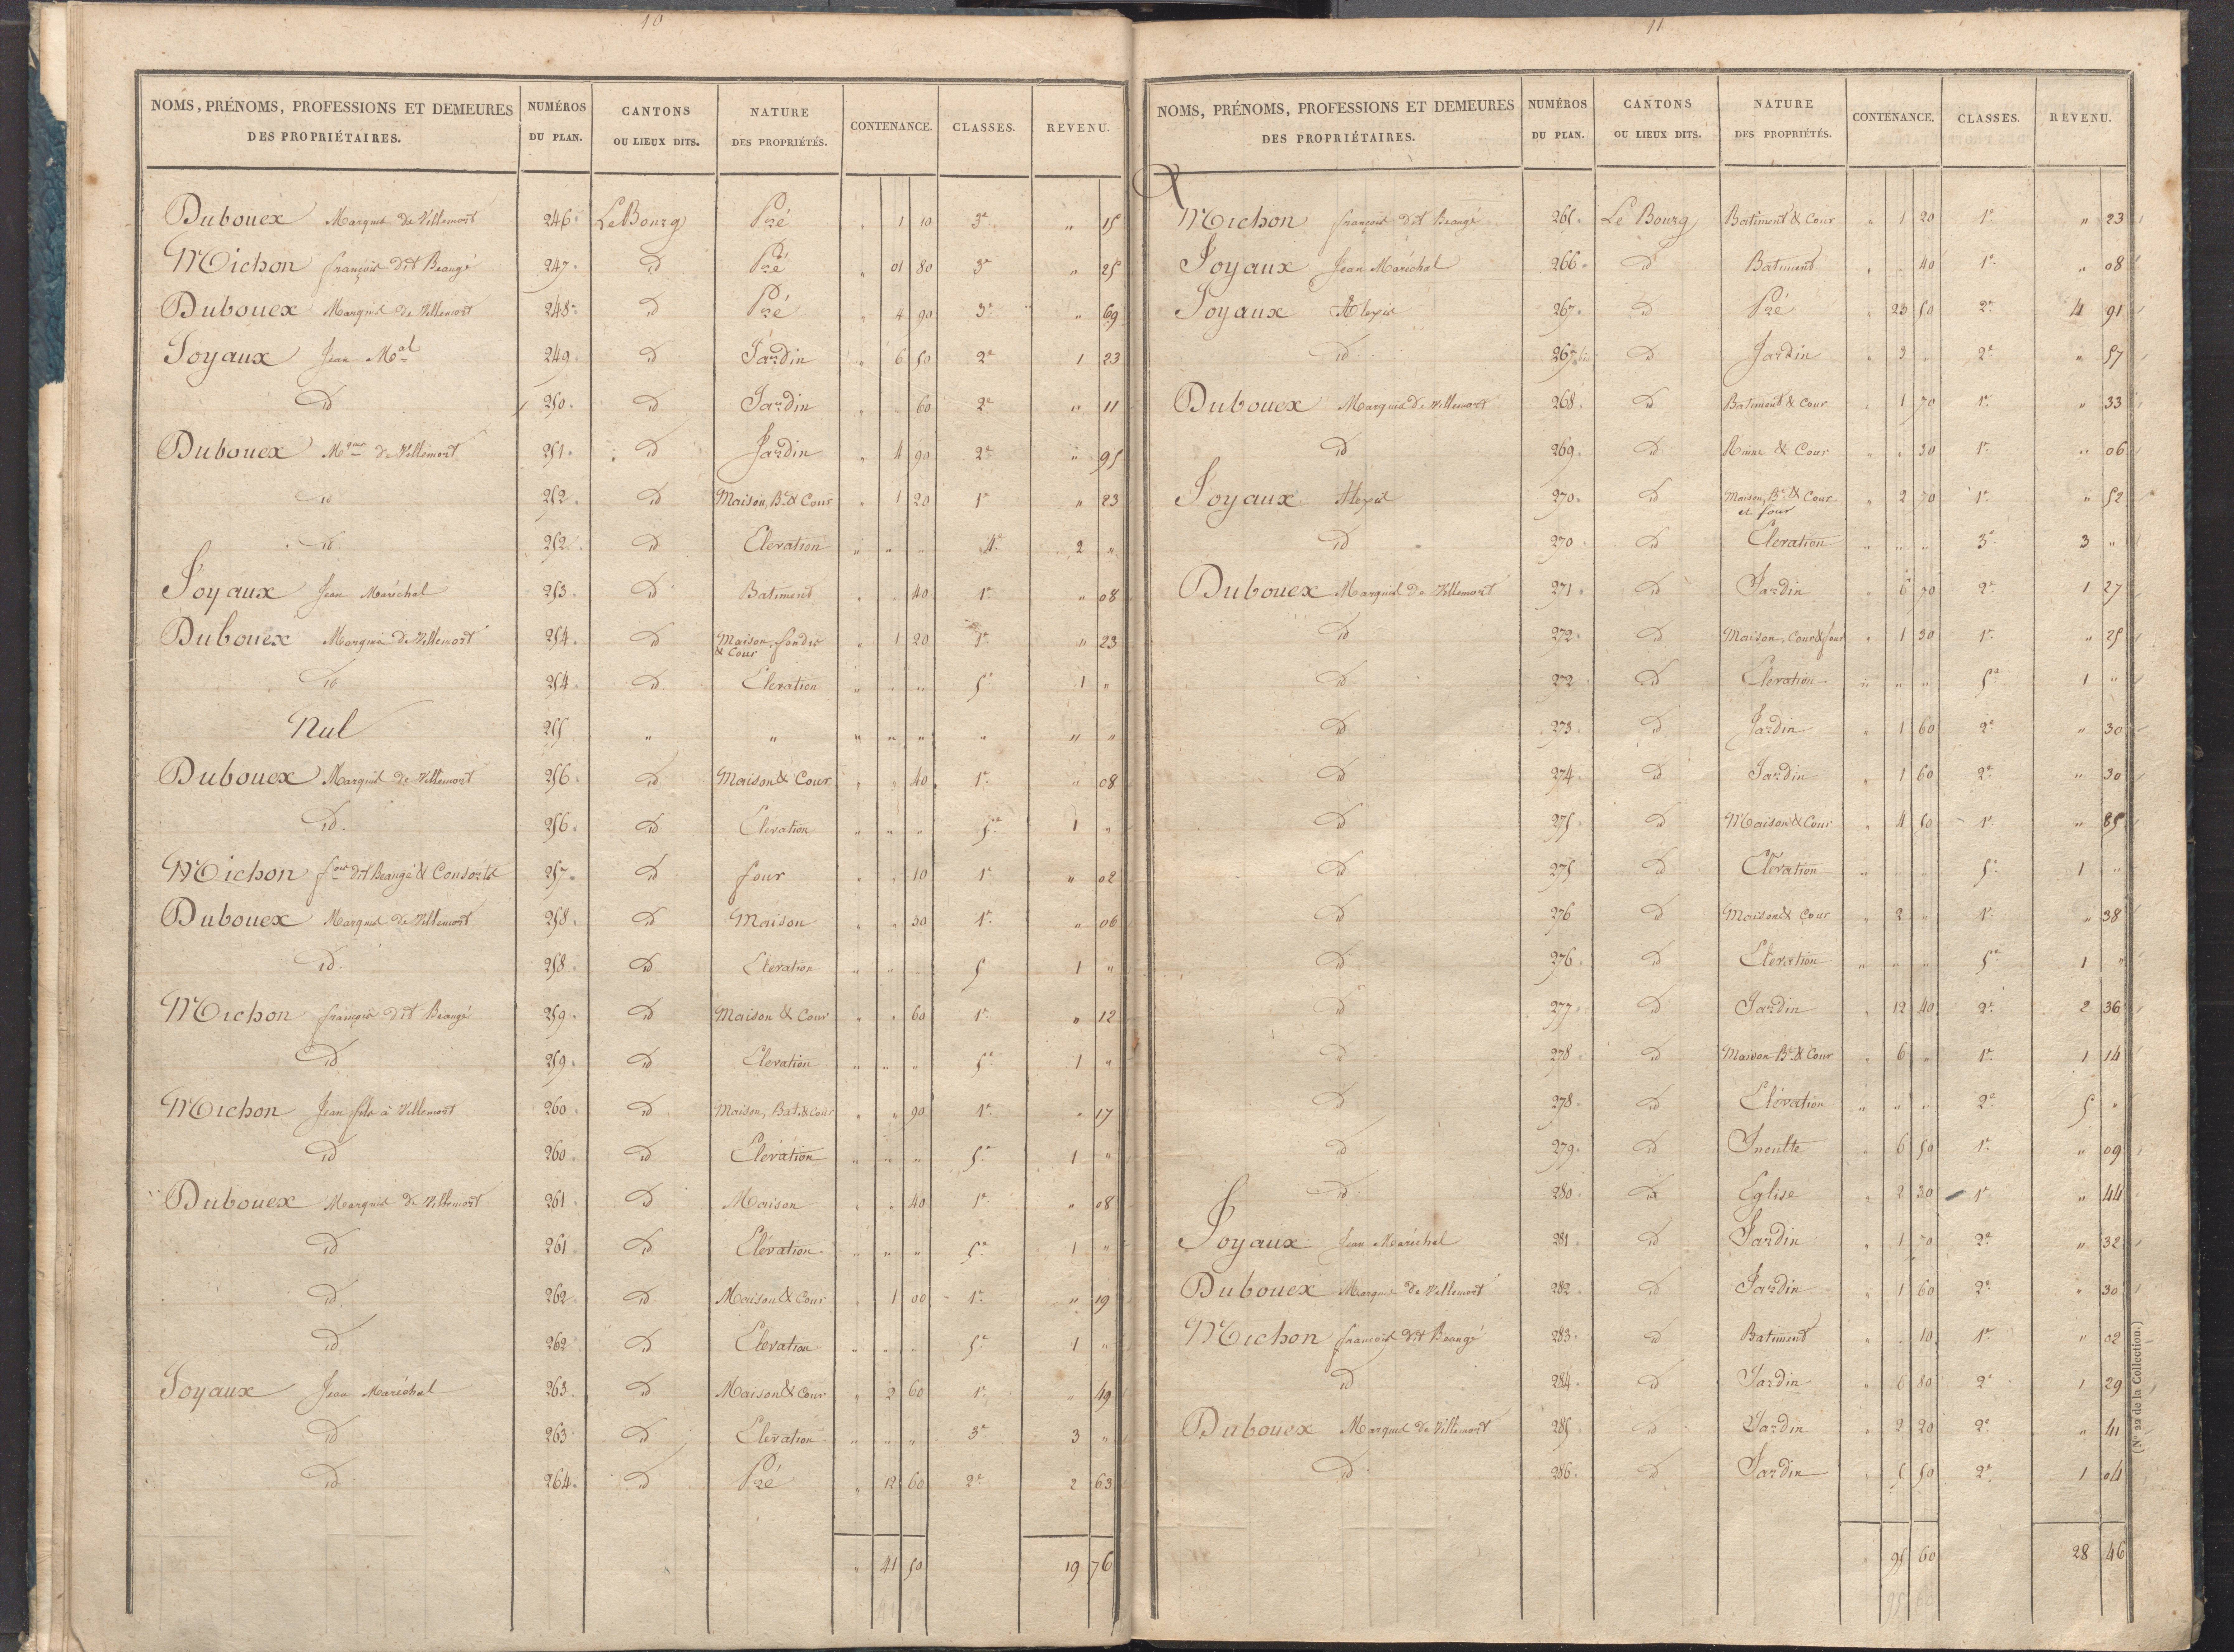 10
NOMS, PRÉNOMS, PROFESSIONS ET DEMEURES DES PROPRIÉTAIRES. NUMÉROS DU PLAN. CANTONS OU LIEUX DITS. NATURE DES PROPRIÉTÉS. CONTENANCE. CLASSES. REVENU.
Dubouex Marquis de Villemort 246. Le Bourg Pré " 1 10 3e " 15
Michon françois dit Beaugé 247. id Pré " 01 80 3e " 25
Dubouex Marquis de Villemort 248. id Pré " 4 90 3e " 69
Joyaux Jean Mal 249. id Jardin " 6 50 2e 1 23
id 250. id Jardin " " 60 2e " 11
Dubouex Mquis de Villemort 251. id Jardin " 4 90 2e " 95
id 252. id Maison, Bt. & Cour " 1 20 1e " 23
id 252. id Elevation " " " 4e 2 "
Joyaux Jean Maréchal 253. id Batiment " " 40 1e " 08
Dubouex Marquis de Villemort 254. id Maison, & Cour " 1 20 1e " 23
id 254. id Elevation " " " 5e 1 "
Nul 255 " " " " " " " "
Dubouex Marquis de Villemort 256. id Maison & Cour " " 40 1e " 08
id. 256. id Elévation " " " 5e 1 "
Michon fois dit Beaugé & Consorts 257. id four " " 10 1e " 02
Dubouex Marquis de Villemort 258. id Maison " " 30 1e " 06
id. 258. id Elevation " " " 5 1 "
Michon françois dit Beaugé 259. id Maison & Cour " " 60 1e " 12
id 259. id Elevation " " " 5e 1 "
Michon Jean fils à Villemort 260. id Maison, Bat. & Cour " " 90 1e " 17
id 260. id Elévation " " " 5e 1 "
Dubouex Marquis de Villemort 261 id Maison " " 40 1e " 08
id 261 id Elévation " " " 5e 1 "
id 262 id Maison & Cour " 1 00 1e " 19
id 262 id Elevation " " " 5e 1 "
Joyaux Jean Maréchal 263. id Maison & Cour " 2 60 1e " 49
id 263 id Elevation " " " 3e 3 "
id 264. id Pré " 12 60 2e 2 63
" 41 50 19 76
11
NOMS, PRÉNOMS, PROFESSIONS ET DEMEURES DES PROPRIÉTAIRES. NUMÉROS DU PLAN. CANTONS OU LIEUX DITS. NATURE DES PROPRIÉTÉS. CONTENANCE. CLASSES. REVENU.
Michon françois dit Beaugé 265. Le Bourg Batiment & Cour " 1 20 1e " 23
Joyaux Jean Maréchal 266. id Batiment " " 40 1e " 08
Joyaux Alexis 267. id Pré " 23 50 2e 4 91
id 267 bis id Jardin " 3 " 2e " 57
Dubouex Marquis de Villemort 268. id Batiment & Cour " 1 70 1e " 33
id 269. id Ruine & Cour " " 30 1e " 06
Joyaux Alexis 270. id Maison, Bt. & Cour et four " 2 70 1e " 52
id 270 id Elevation " " " 3e 3 "
Dubouex Marquis de Villemort 271. id Jardin " 6 70 2e 1 27
id 272. id Maison, Cour & four " 1 30 1e " 25
id 272 id Elévation " " " 5e 1 "
id 273. id Jardin " 1 60 2e " 30
id 274. id Jardin " 1 60 2e " 30
id 275 id Maison & Cour " 4 50 1e " 85
id 275 id Elévation " " " 5e 1 "
id 276 id Maison & Cour " 2 " 1e " 38
id 276. id Elevation " " " 5e 1 "
id 277. id Jardin " 12 40 2e 2 36
id 278. id Maison Bt. & Cour " 6 " 1e 1 14
id 278. id Elévation " " " 2e 5 "
id 279. id Inculte " 6 50 1e " 09
id 280. id Eglise " 2 30 1e " 44
Joyaux Jean Maréchal 281. id Jardin " 1 70 2e " 32
Dubouex Marquis de Villemort 282. id Jardin " 1 60 2e " 30
Michon françois dit Beaugé 283. id Batiment " " 10 1e " 02
id 284. id Jardin " 6 80 2e 1 29
Dubouex Marquis de Villemort 285. id Jardin " 2 20 2e " 41
id 286. id Jardin " 5 50 2e 1 04
" 95 60 28 46
(N° 22 de la Collection.)